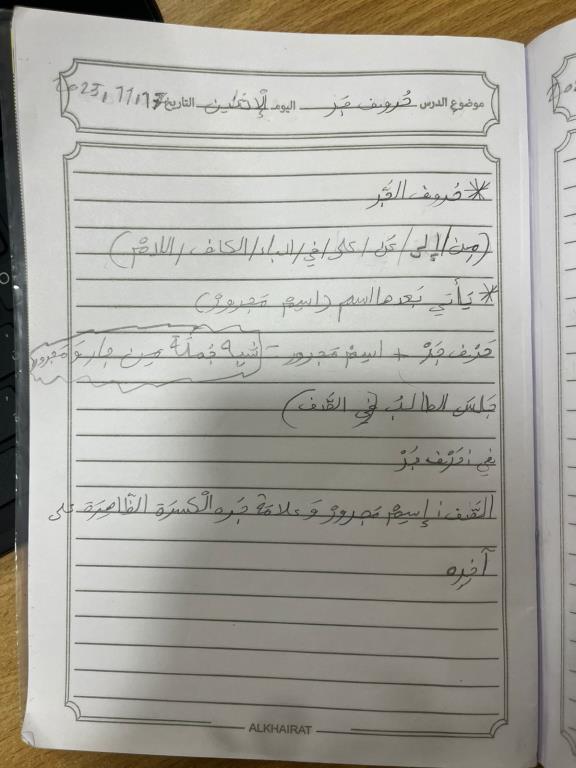 موضوع الدرس حُروف جَر اليوم الإثنين التاريخ 2025,11,17
* حُروف الجَر
(مِن/إلى/عَن/على/في/الباء/الكاف/اللام)
* يَأتي بَعدها اسم (اسِم مَجرور)
حَرْف جَرْ + اسِمْ مَجرور = شبه جُملَة مِن جار وَمَجرور
جَلَسَ الطالبُ (في الصَف)
في: حَرْف جَرْ
الصَف: إسِمْ مَجرورْ وَعلامَة جَره الْكسرَة الظاهِرَة على
آخِره
ALKHAIRAT